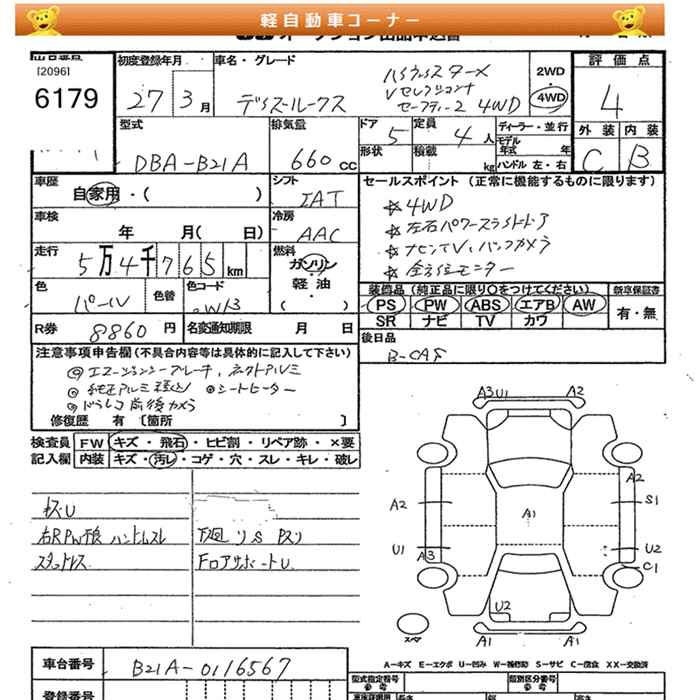 軽自動車コーナー
[2096]
6179
初度登録年月
27 3月
車名・グレード
ハイウェイスターX
Vセレクション+
セーフティー2 4WD
デイズルークス
2WD
・
4WD
評価点
4
外装 内装
C B
型式
DBA-B21A
排気量
660cc
ドア
5
形状
定員
4人
積載
kg
ディーラー・並行
モデル年式 年
ハンドル 左・右
車歴
自家用・( )
シフト
IAT
セールスポイント (正常に機能するものに限ります)
☆4WD
☆左右パワースライドドア
☆ナビシTV、バックカメラ
☆全方位モニター
車検
年 月( 日)
冷房
AAC
走行
5万4千765km
燃料
ガソリン
・
軽油
( )
色
パール
色替
色コード
R券
8860円
名変通知期限 月 日
装飾品 (純正品に限り○をつけてください)
PS PW ABS エアB AW
SR ナビ TV カワ
新車保証書
有・無
後日品
B-CAS
注意事項申告欄 (不具合内容等は具体的に記入して下さい)
◎エマージェンシーブレーキ、
◎純正アルミ ◎シートヒーター
◎ドラレコ前後カメラ
修復歴 有 [箇所 ]
検査員 FW キズ・飛石・ヒビ割・リペア跡・×要
記入欄 内装 キズ・汚レ・コゲ・穴・スレ・キレ・破レ
キズU
右R PW干良 ハンドルスレ
スタットレス
下廻リS Pスリ
FロアサポートU
A3 U1 A2
A2 A2 S1
A1
U1 A3 U2
C1
U2
A1 A1
スペア
A-キズ E-エクボ U-凹み W-補修跡 S-サビ C-腐食 XX-交換済
車台番号
B21A-0116567
登録番号
型式指定番号
参考
類別区分番号
参考
長さ 幅 高さ